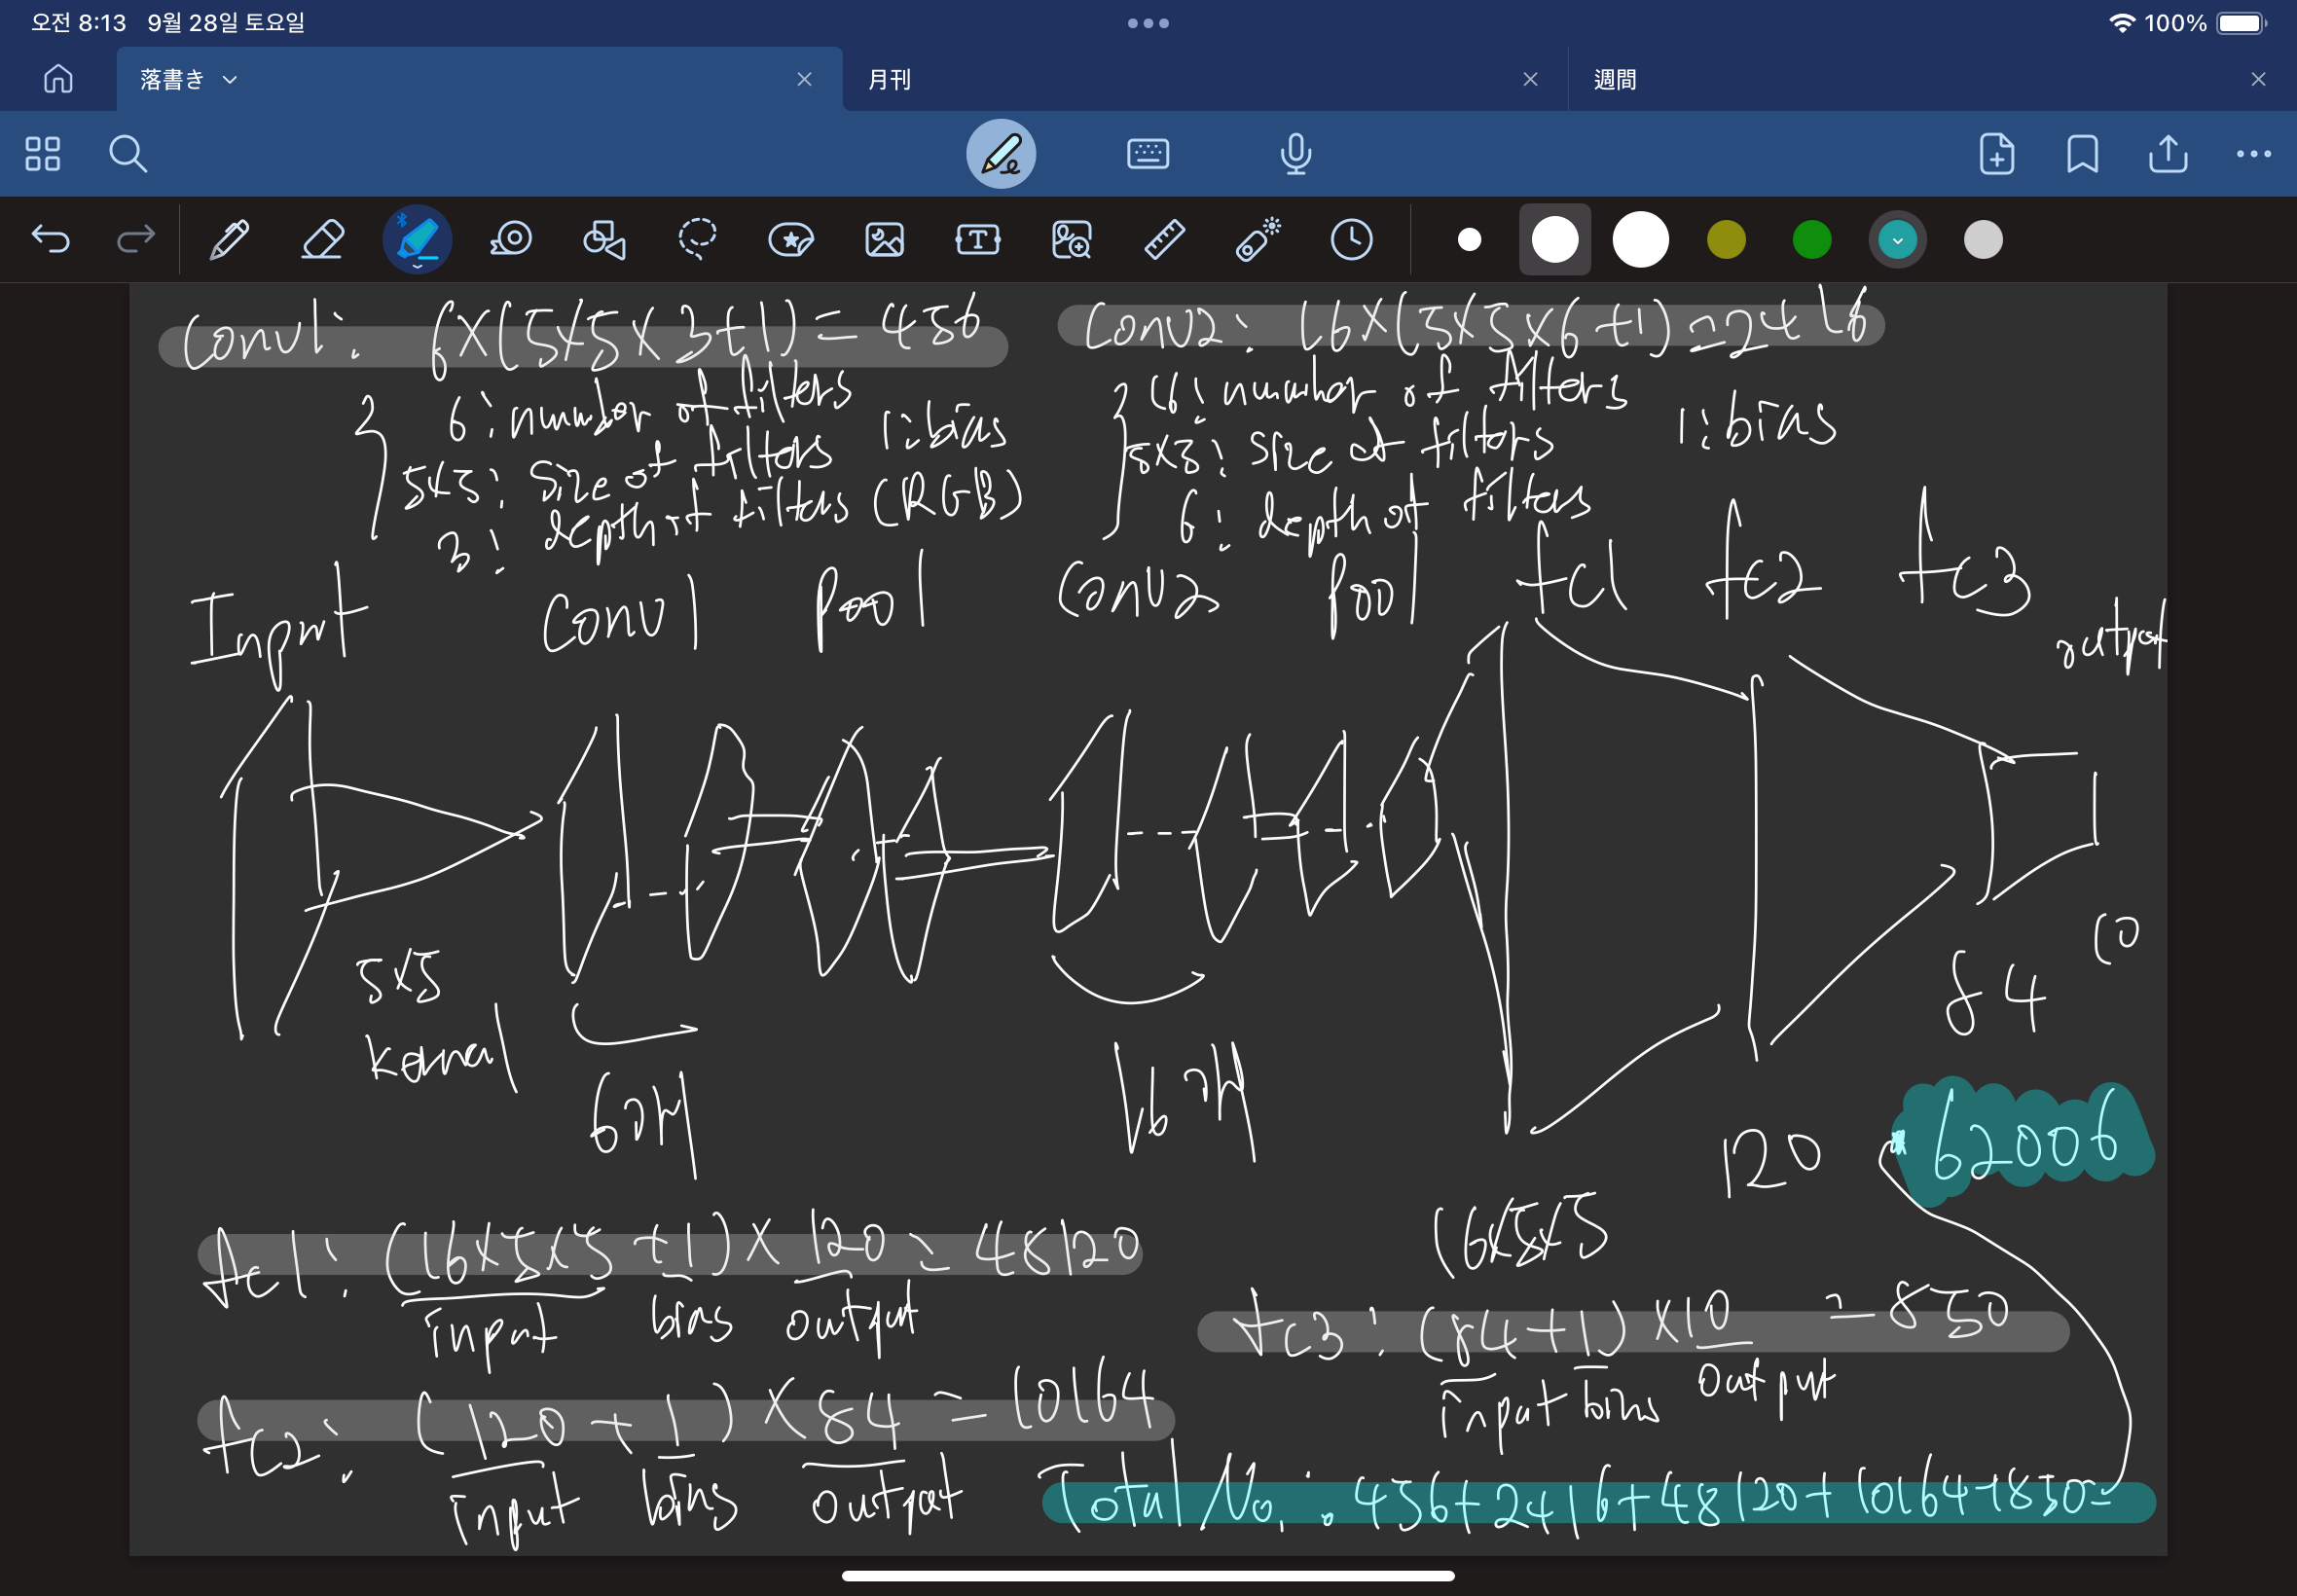 오전 8:13 9월 28일 토요일
100%
落書き
月刊
週間
Conv1: 6×(5×5×3+1)=456
6: number of filters
1: bias
5×5: size of filters
3: depth of filters (RGB)
Conv2: 16×(5×5×6+1)=2416
16: number of filters
1: bias
5×5: size of filters
6: depth of filters
Input Conv1 Pool Conv2 Pool fc1 fc2 fc3 output
5×5
kernal
6개
16개
16×5×5
120
84
10
62006
fc1: (16×5×5+1)×120=48120
input bias output
fc3: (84+1)×10=850
input bias output
fc2: (120+1)×84=10164
input bias output
Total No.: 456+2416+48120+10164+850=